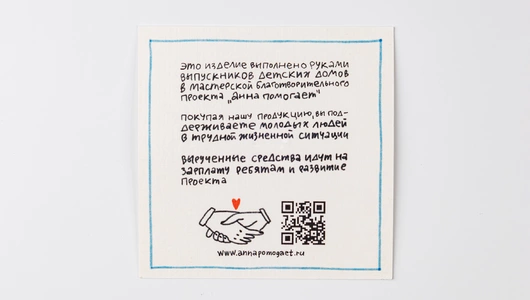 это изделие выполнено руками
выпускников детских домов
в мастерской благотворительного
проекта „анна помогает“
покупая нашу продукцию, вы под-
держиваете молодых людей
в трудной жизненной ситуации
вырученные средства идут на
зарплату ребятам и развитие
проекта
www.annapomogaet.ru